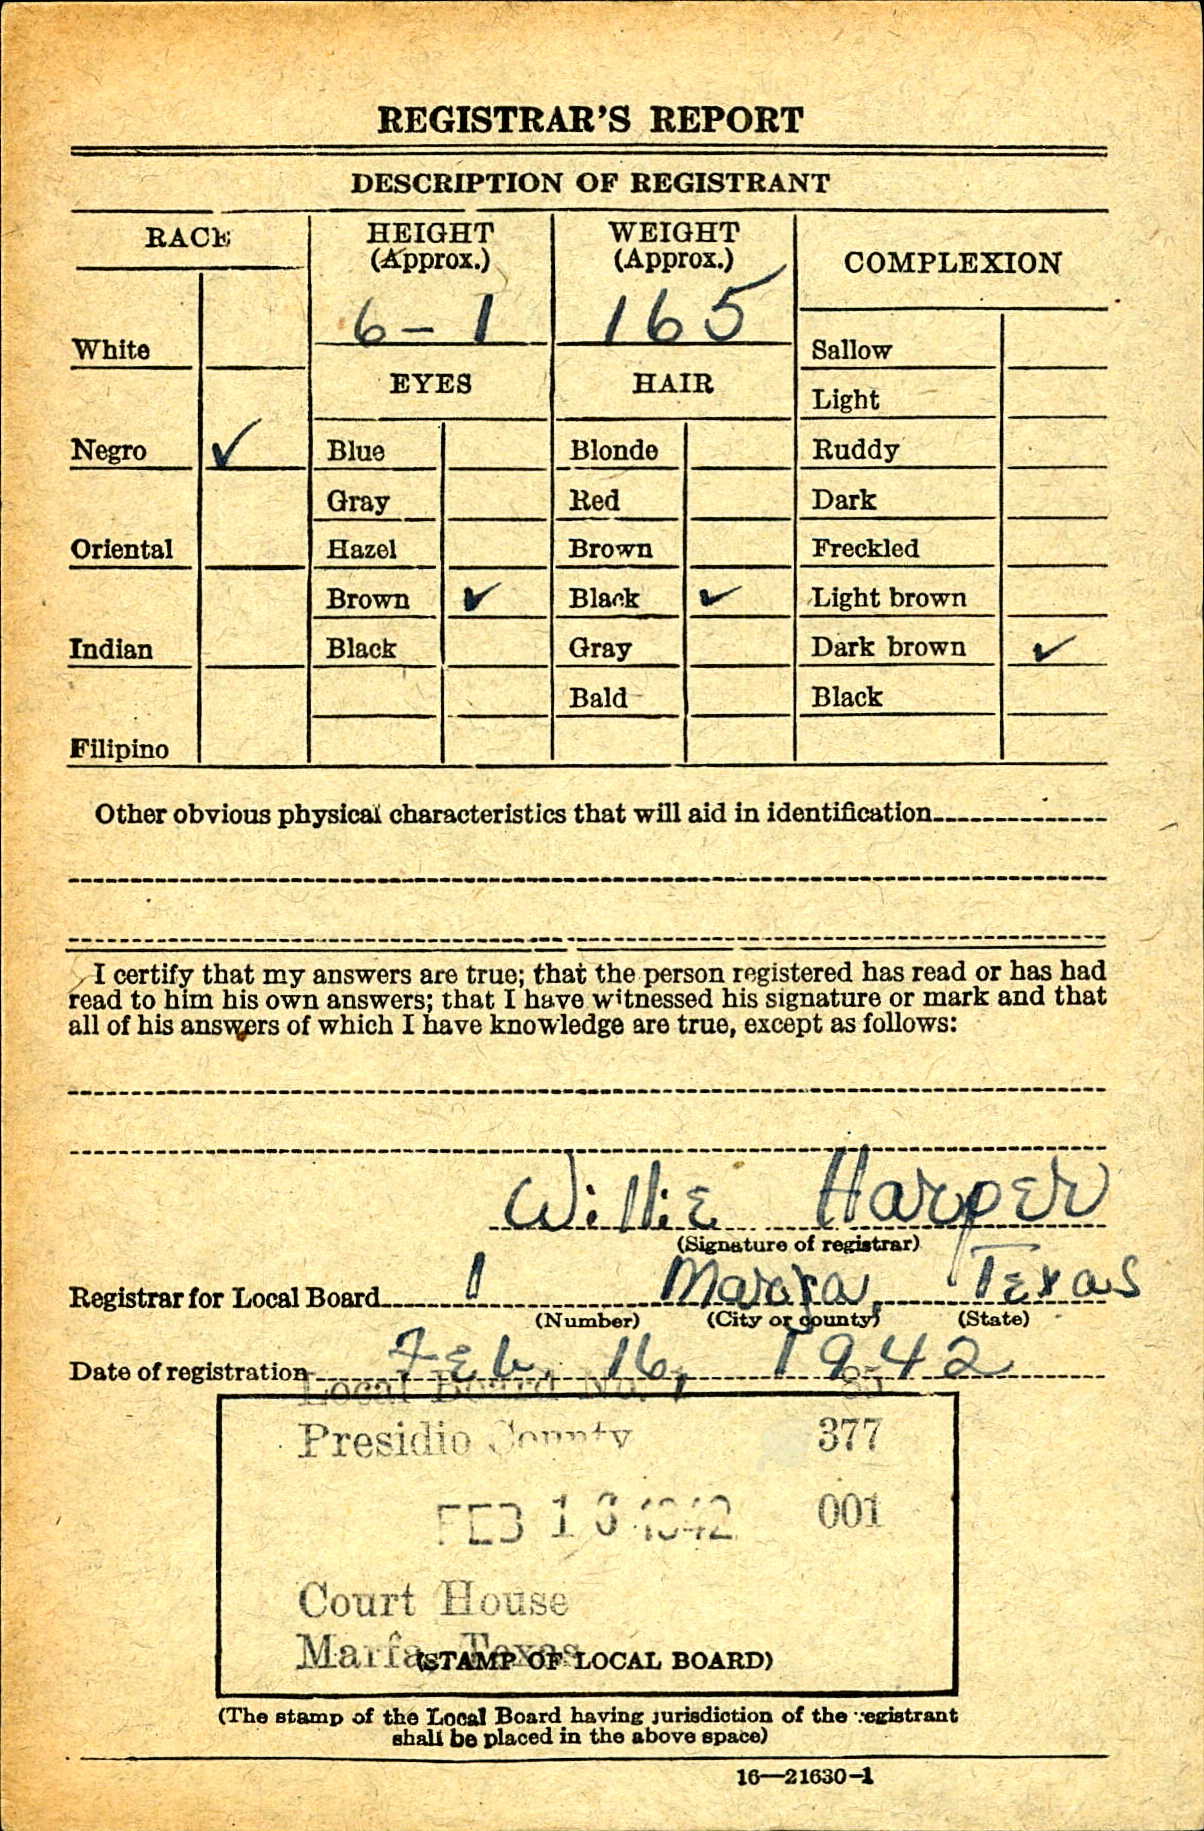 REGISTRAR'S REPORT
DESCRIPTION OF REGISTRANT
RACE
HEIGHT
(Approx.)
WEIGHT
(Approx.)
COMPLEXION
6-1
165
White
Sallow
EYES
HAIR
Light
Negro ✓
Blue
Blonde
Ruddy
Gray
Red
Dark
Oriental
Hazel
Brown
Freckled
Brown ✓
Black ✓
Light brown
Indian
Black
Gray
Dark brown ✓
Bald
Black
Filipino
Other obvious physical characteristics that will aid in identification
I certify that my answers are true; that the person registered has read or has had
read to him his own answers; that I have witnessed his signature or mark and that
all of his answers of which I have knowledge are true, except as follows:
Willie Harper
(Signature of registrar)
Registrar for Local Board 1 Marfa, Texas
(Number) (City or county) (State)
Date of registration Feb. 16, 1942
Local Board No. 1 85
Presidio County 377
FEB 16 1942 001
Court House
Marfa, Texas
(STAMP OF LOCAL BOARD)
(The stamp of the Local Board having jurisdiction of the registrant
shall be placed in the above space)
16—21630-1